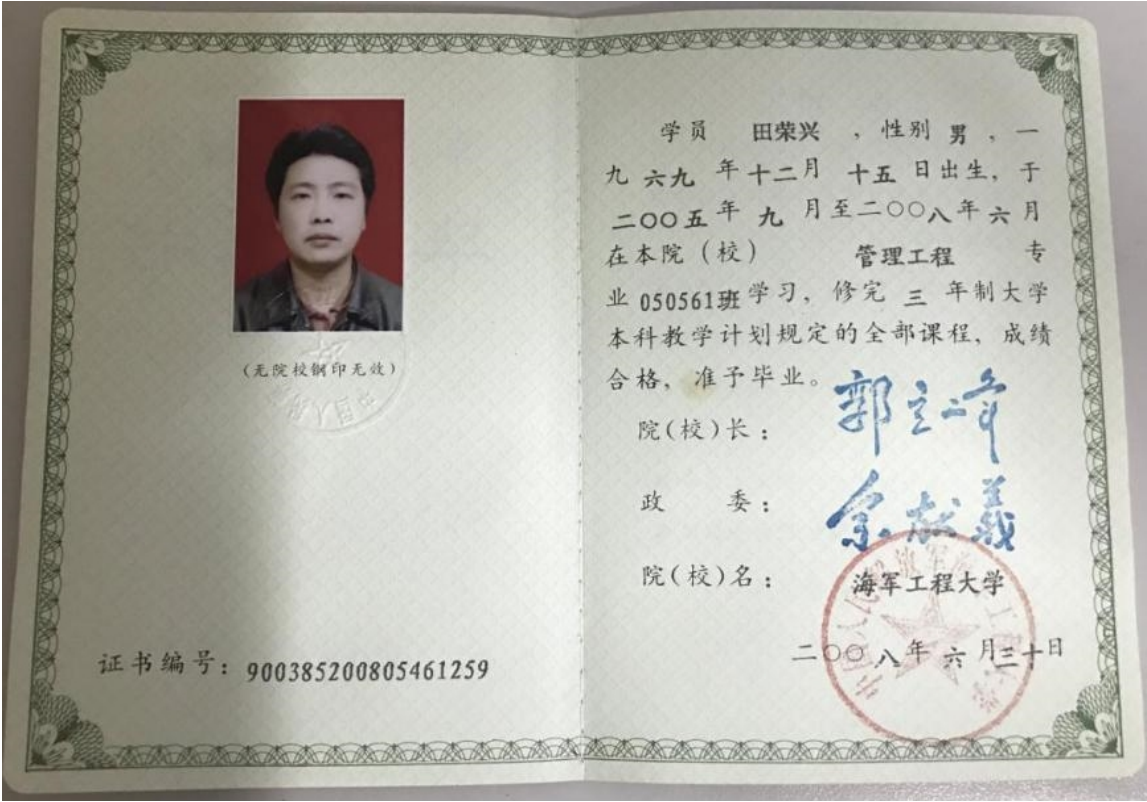 (无院校钢印无效)
证书编号：900385200805461259
学员 田荣兴 ，性别 男 ，一
九 六九 年十二月 十五 日出生，于
二〇〇五年 九 月至二〇〇八年 六 月
在本院（校） 管理工程 专
业 050561班 学习，修完 三 年制大学
本科教学计划规定的全部课程，成绩
合格，准予毕业。
院(校)长： 郭立峰
政 委： 余献义
院(校)名： 海军工程大学
二〇〇八年 六 月三十日